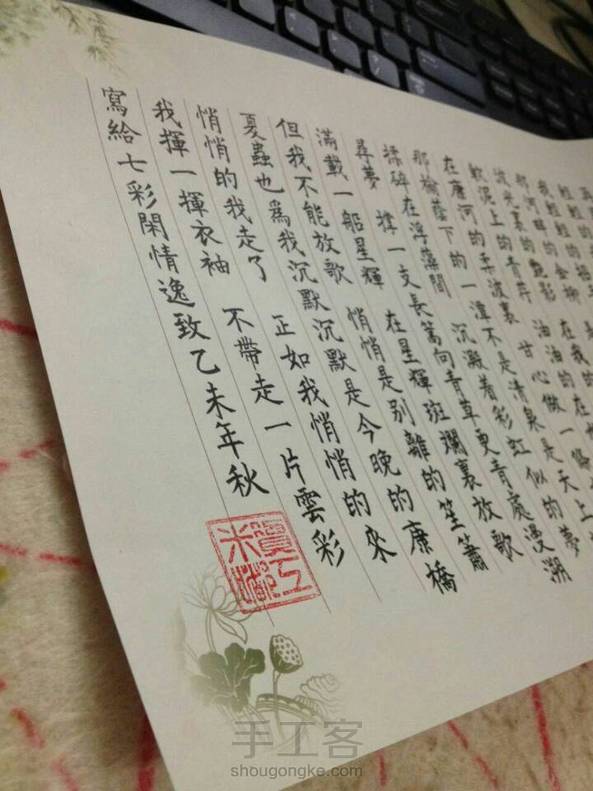 軟泥上的青荇 油油的在
在康河的柔波裏 甘心做一條
那榆蔭下的一潭 不是清泉 是天上
揉碎在浮藻間 沉澱着彩虹似的夢
尋夢 撐一支長篙 向青草更青處漫溯
滿載一船星輝 在星輝斑斕裏放歌
但我不能放歌 悄悄是別離的笙簫
夏蟲也為我沉默 沉默是今晚的康橋
悄悄的我走了 正如我悄悄的來
我揮一揮衣袖 不帶走一片雲彩
寫給七彩閑情逸致乙未年秋
手工客
shougongke.com